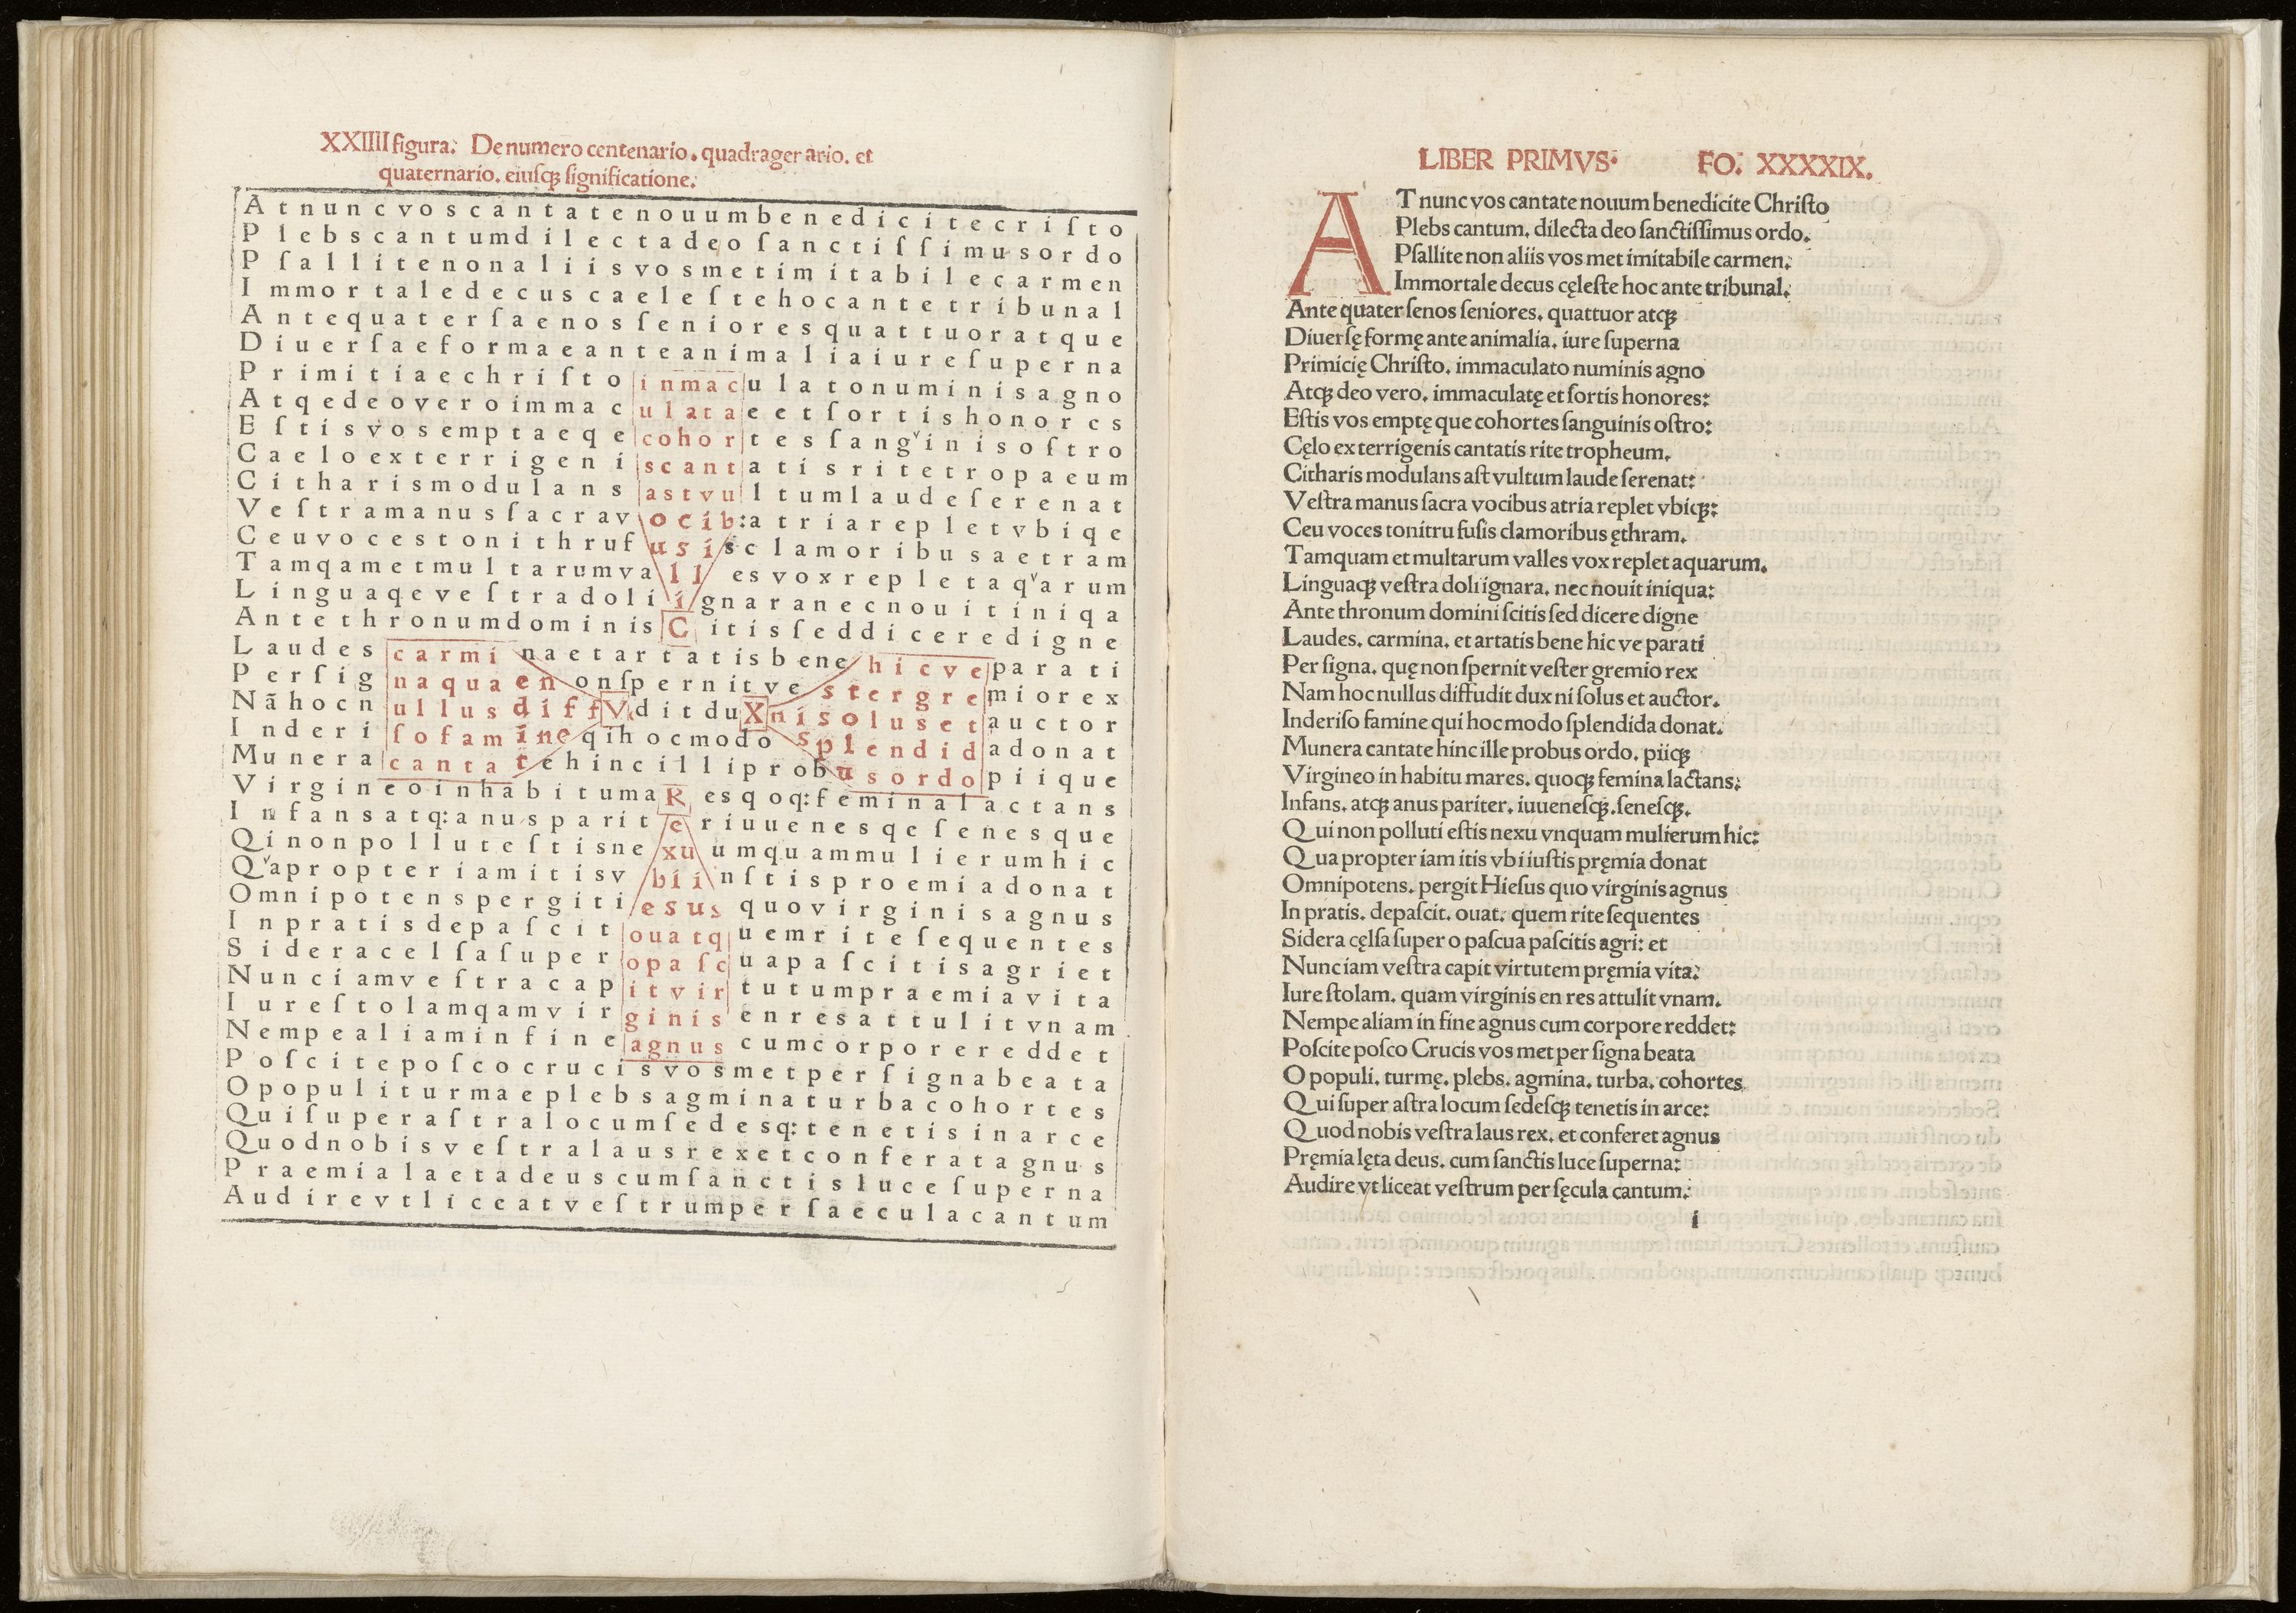 XXIIII figura: De numero centenario. quadragenario. et
quaternario. eiusqꝫ significatione:
A t n u n c v o s c a n t a t e n o u u m b e n e d i c i t e c r i ſ t o
P l e b s c a n t u m d i l e c t a d e o ſ a n c t i ſ ſ i m u s o r d o
P ſ a l l i t e n o n a l i i s v o s m e t i m i t a b i l e c a r m e n
I m m o r t a l e d e c u s c a e l e ſ t e h o c a n t e t r i b u n a l
A n t e q u a t e r ſ a e n o s ſ e n i o r e s q u a t t u o r a t q u e
D i u e r ſ a e f o r m a e a n t e a n i m a l i a i u r e ſ u p e r n a
P r i m i t i a e c h r i ſ t o i n m a c u l a t o n u m i n i s a g n o
A t q e d e o v e r o i m m a c u l a t a e e t ſ o r t i s h o n o r e s
E ſ t i s v o s e m p t a e q e c o h o r t e s ſ a n g v i n i s o ſ t r o
C a e l o e x t e r r i g e n i s c a n t a t i s r i t e t r o p a e u m
C i t h a r i s m o d u l a n s a s t v u l t u m l a u d e ſ e r e n a t
V e ſ t r a m a n u s ſ a c r a v o c i b : a t r i a r e p l e t v b i q e
C e u v o c e s t o n i t h r u f u s i s c l a m o r i b u s a e t r a m
T a m q a m e t m u l t a r u m v a l l e s v o x r e p l e t a q v a r u m
L i n g u a q e v e ſ t r a d o l i i g n a r a n e c n o u i t i n i q a
A n t e t h r o n u m d o m i n i s C i t i s ſ e d d i c e r e d i g n e
L a u d e s c a r m i n a e t a r t a t i s b e n e h i c v e p a r a t i
P e r ſ i g n a q u a e n o n ſ p e r n i t v e s t e r g r e m i o r e x
N ã h o c n u l l u s d i f f V d i t d u X n i s o l u s e t a u c t o r
I n d e r i ſ o f a m i n e q i h o c m o d o s p l e n d i d a d o n a t
M u n e r a c a n t a t e h i n c i l l i p r o b u s o r d o p i i q u e
V i r g i n e o i n h a b i t u m a R e s q o q : f e m i n a l a c t a n s
I n f a n s a t q : a n u s p a r i t e r i u u e n e s q e ſ e n e s q u e
Q i n o n p o l l u t e ſ t i s n e x u u m q u a m m u l i e r u m h i c
Q v a p r o p t e r i a m i t i s v b i i u ſ t i s p r o e m i a d o n a t
O m n i p o t e n s p e r g i t i e s u s q u o v i r g i n i s a g n u s
I n p r a t i s d e p a ſ c i t o u a t q u e m r i t e ſ e q u e n t e s
S i d e r a c e l ſ a ſ u p e r o p a ſ c u a p a ſ c i t i s a g r i e t
N u n c i a m v e ſ t r a c a p i t v i r t u t u m p r a e m i a v i t a
I u r e ſ t o l a m q a m v i r g i n i s e n r e s a t t u l i t v n a m
N e m p e a l i a m i n f i n e a g n u s c u m c o r p o r e r e d d e t
P o ſ c i t e p o ſ c o c r u c i s v o s m e t p e r ſ i g n a b e a t a
O p o p u l i t u r m a e p l e b s a g m i n a t u r b a c o h o r t e s
Q u i ſ u p e r a ſ t r a l o c u m ſ e d e s q : t e n e t i s i n a r c e
Q u o d n o b i s v e ſ t r a l a u s r e x e t c o n f e r a t a g n u s
P r a e m i a l a e t a d e u s c u m ſ a n c t i s l u c e ſ u p e r n a
A u d i r e v t l i c e a t v e ſ t r u m p e r ſ a e c u l a c a n t u m
LIBER PRIMVS. FO. XXXXIX.
AT nunc vos cantate nouum benedicite Chriſto
Plebs cantum. dilecta deo ſanctiſſimus ordo.
Pſallite non aliis vos met imitabile carmen:
Immortale decus cęleſte hoc ante tribunal.
Ante quater ſenos ſeniores. quattuor atqꝫ
Diuerſę formę ante animalia. iure ſuperna
Primicię Chriſto. immaculato numinis agno
Atqꝫ deo vero. immaculatę et ſortis honores:
Eſtis vos emptę que cohortes ſanguinis oſtro:
Cęlo ex terrigenis cantatis rite tropheum.
Citharis modulans aſt vultum laude ſerenat:
Veſtra manus ſacra vocibus atria replet vbiqꝫ:
Ceu voces tonitru fuſis clamoribus ęthram.
Tamquam et multarum valles vox replet aquarum.
Linguaqꝫ veſtra doli ignara. nec nouit iniqua:
Ante thronum domini ſcitis ſed dicere digne
Laudes. carmina. et artatis bene hic ve parati
Per ſigna. quę non ſpernit veſter gremio rex
Nam hoc nullus diffudit dux ni ſolus et auctor.
Inderiſo famine qui hoc modo ſplendida donat.
Munera cantate hinc ille probus ordo. piiqꝫ
Virgineo in habitu mares. quoqꝫ femina lactans:
Infans. atqꝫ anus pariter. iuueneſqꝫ. ſeneſqꝫ.
Qui non polluti eſtis nexu vnquam mulierum hic:
Qua propter iam itis vbi iuſtis pręmia donat
Omnipotens. pergit Hieſus quo virginis agnus
In pratis. depaſcit. ouat. quem rite ſequentes
Sidera cęlſa ſuper o paſcua paſcitis agri: et
Nunc iam veſtra capit virtutem pręmia vita:
Iure ſtolam. quam virginis en res attulit vnam.
Nempe aliam in fine agnus cum corpore reddet:
Poſcite poſco Crucis vos met per ſigna beata
O populi. turmę. plebs. agmina. turba. cohortes
Qui ſuper aſtra locum ſedeſqꝫ tenetis in arce:
Quod nobis veſtra laus rex. et conferet agnus
Pręmia lęta deus. cum ſanctis luce ſuperna:
Audire vt liceat veſtrum per ſęcula cantum:
i